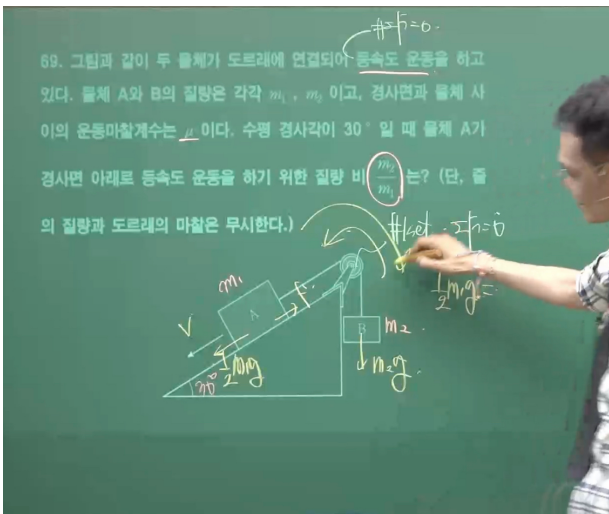 # ΣF=0.
69. 그림과 같이 두 물체가 도르래에 연결되어 등속도 운동을 하고
있다. 물체 A와 B의 질량은 각각 m₁, m₂ 이고, 경사면과 물체 사
이의 운동마찰계수는 μ 이다. 수평 경사각이 30° 일 때 물체 A가
경사면 아래로 등속도 운동을 하기 위한 질량 비 m₂/m₁ 는? (단, 줄
의 질량과 도르래의 마찰은 무시한다.)
ΣF=0
½m₁g =
m₁
A
V
½m₁g
30°
B
m₂
m₂g